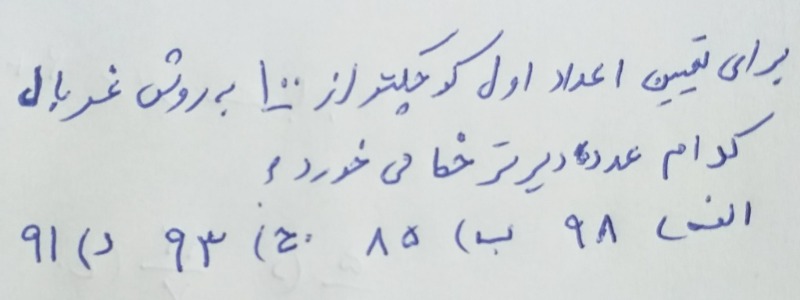 برای تعیین اعداد اول کوچکتر از ۱۰۰ به روش غربال
کدام عدد دیرتر خط می خورد؟
الف) ۹۸ ب) ۸۵ ج) ۹۳ د) ۹۱